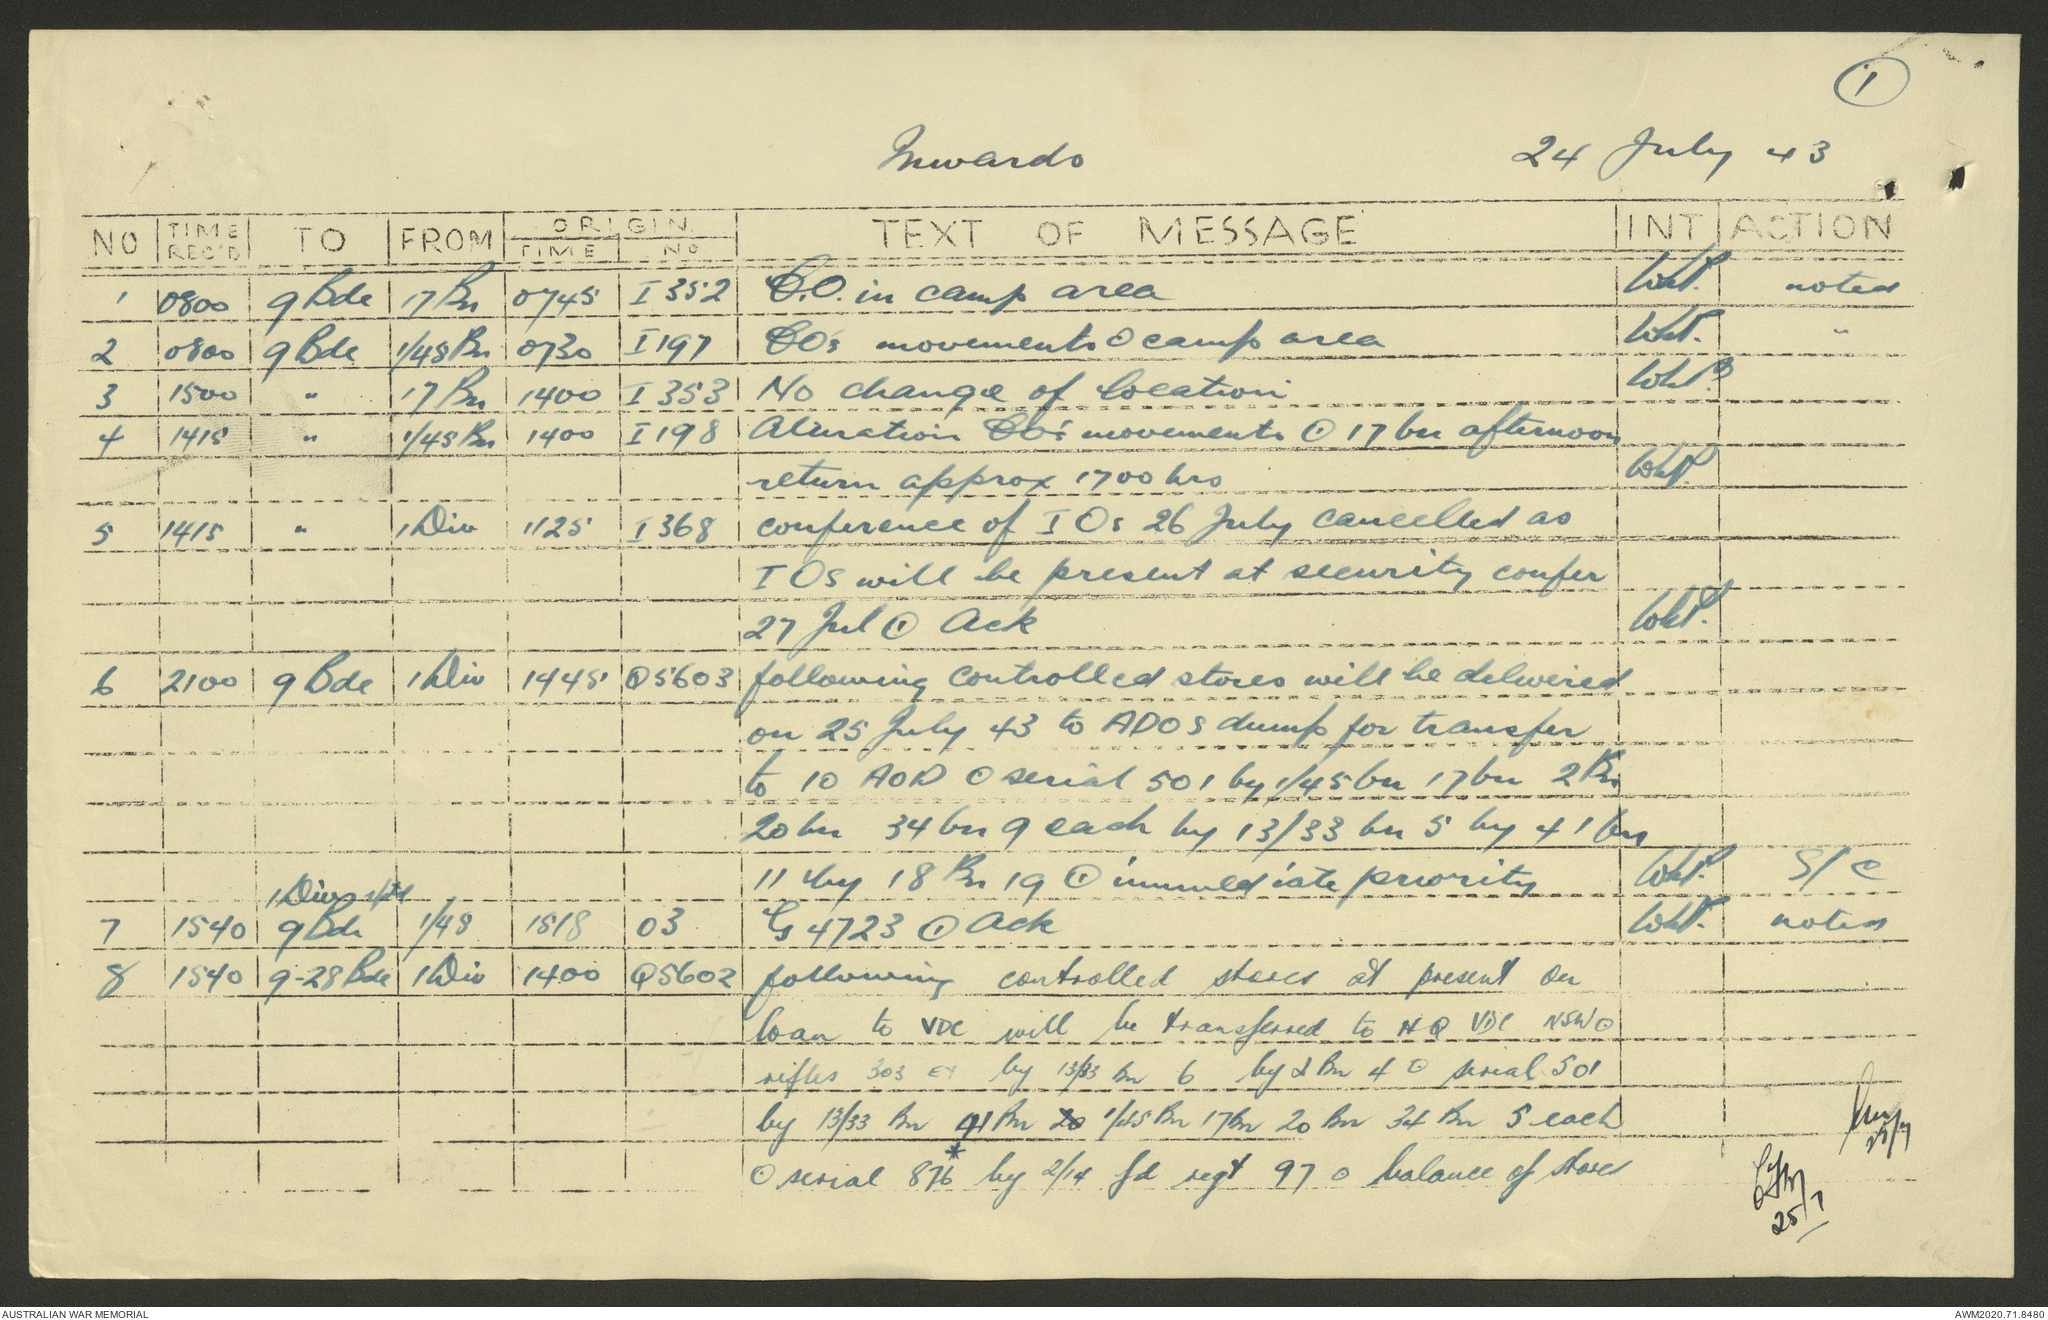 1
Inwards 24 July 43
NO TIME REC'D TO FROM ORIGIN TIME NO TEXT OF MESSAGE INT ACTION
1 0800 9 Bde 17 Bn 0745 I 352 C.O. in camp area WHP. noted
2 0800 9 Bde 1/45 Bn 0730 I 197 CO's movements ⊙ camp area WHP. "
3 1500 " 17 Bn 1400 I 353 No change of location WHP.
4 1415 " 1/45 Bn 1400 I 198 Alteration CO's movements ⊙ 17 bn afternoon
return approx 1700 hrs WHP.
5 1415 " 1 Div 1125 I 368 conference of I Os 26 July cancelled as
I Os will be present at security confer
27 Jul ⊙ Ack WHP.
6 2100 9 Bde 1 Div 1445 Q5603 following controlled stores will be delivered
on 25 July 43 to ADOS dump for transfer
to 10 AOD ⊙ serial 501 by 1/45 bn 17 bn 2 Bn
20 bn 34 bn 9 each by 13/33 bn 5 by 41 bn
11 by 18 Bn 19 ⊙ immediate priority WHP. S/C
1 Div
7 1540 9 Bde 1/45 1518 03 G 4723 ⊙ Ack WHP. noted
8 1540 9-28 Bde 1 Div 1400 Q5602 following controlled stores at present on
loan to VDC will be transferred to HQ VDC NSW ⊙
rifles 303 EY by 13/33 Bn 6 by 2 Bn 4 ⊙ serial 501
by 13/33 Bn 41 Bn 1/45 Bn 17 Bn 20 Bn 34 Bn 5 each
25/7
*
⊙ serial 876 by 2/14 fd regt 97 ⊙ balance of stores
25/7
AUSTRALIAN WAR MEMORIAL AWM2020.71.8480